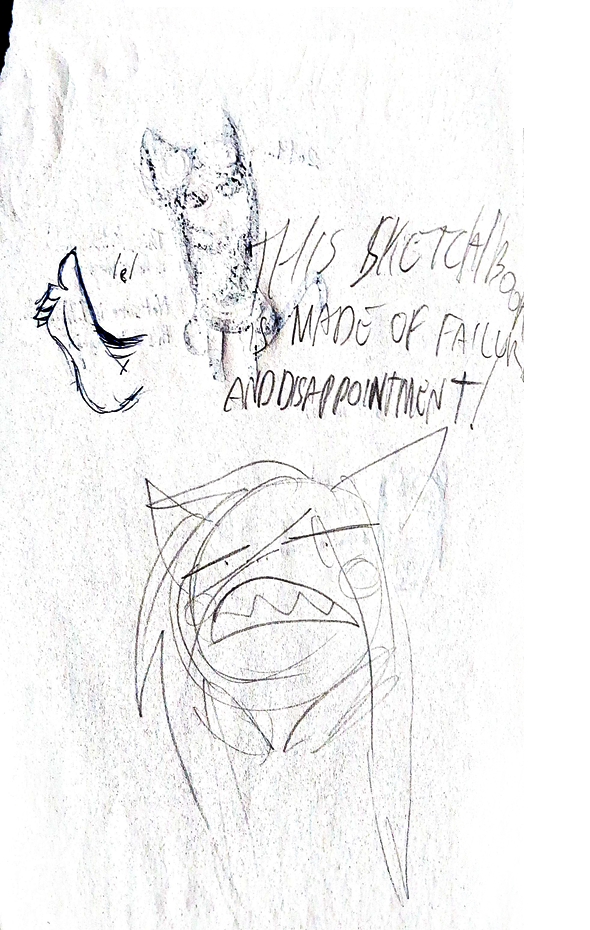 THIS SKETCHBOOK
lel
IS MADE OF FAILUR
AND DISAPPOINTMENT!